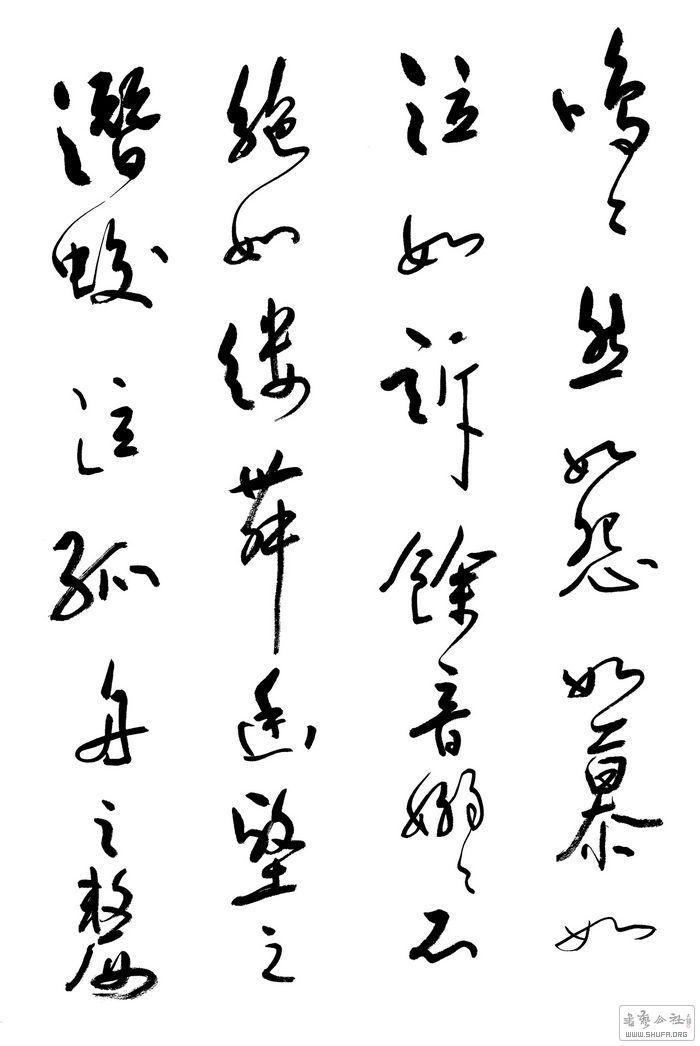 嗚々然如怨如慕如
泣如訴餘音嫋々不
絕如縷舞幽壑之
潛蛟泣孤舟之嫠
書藝公社
WWW.SHUFA.ORG